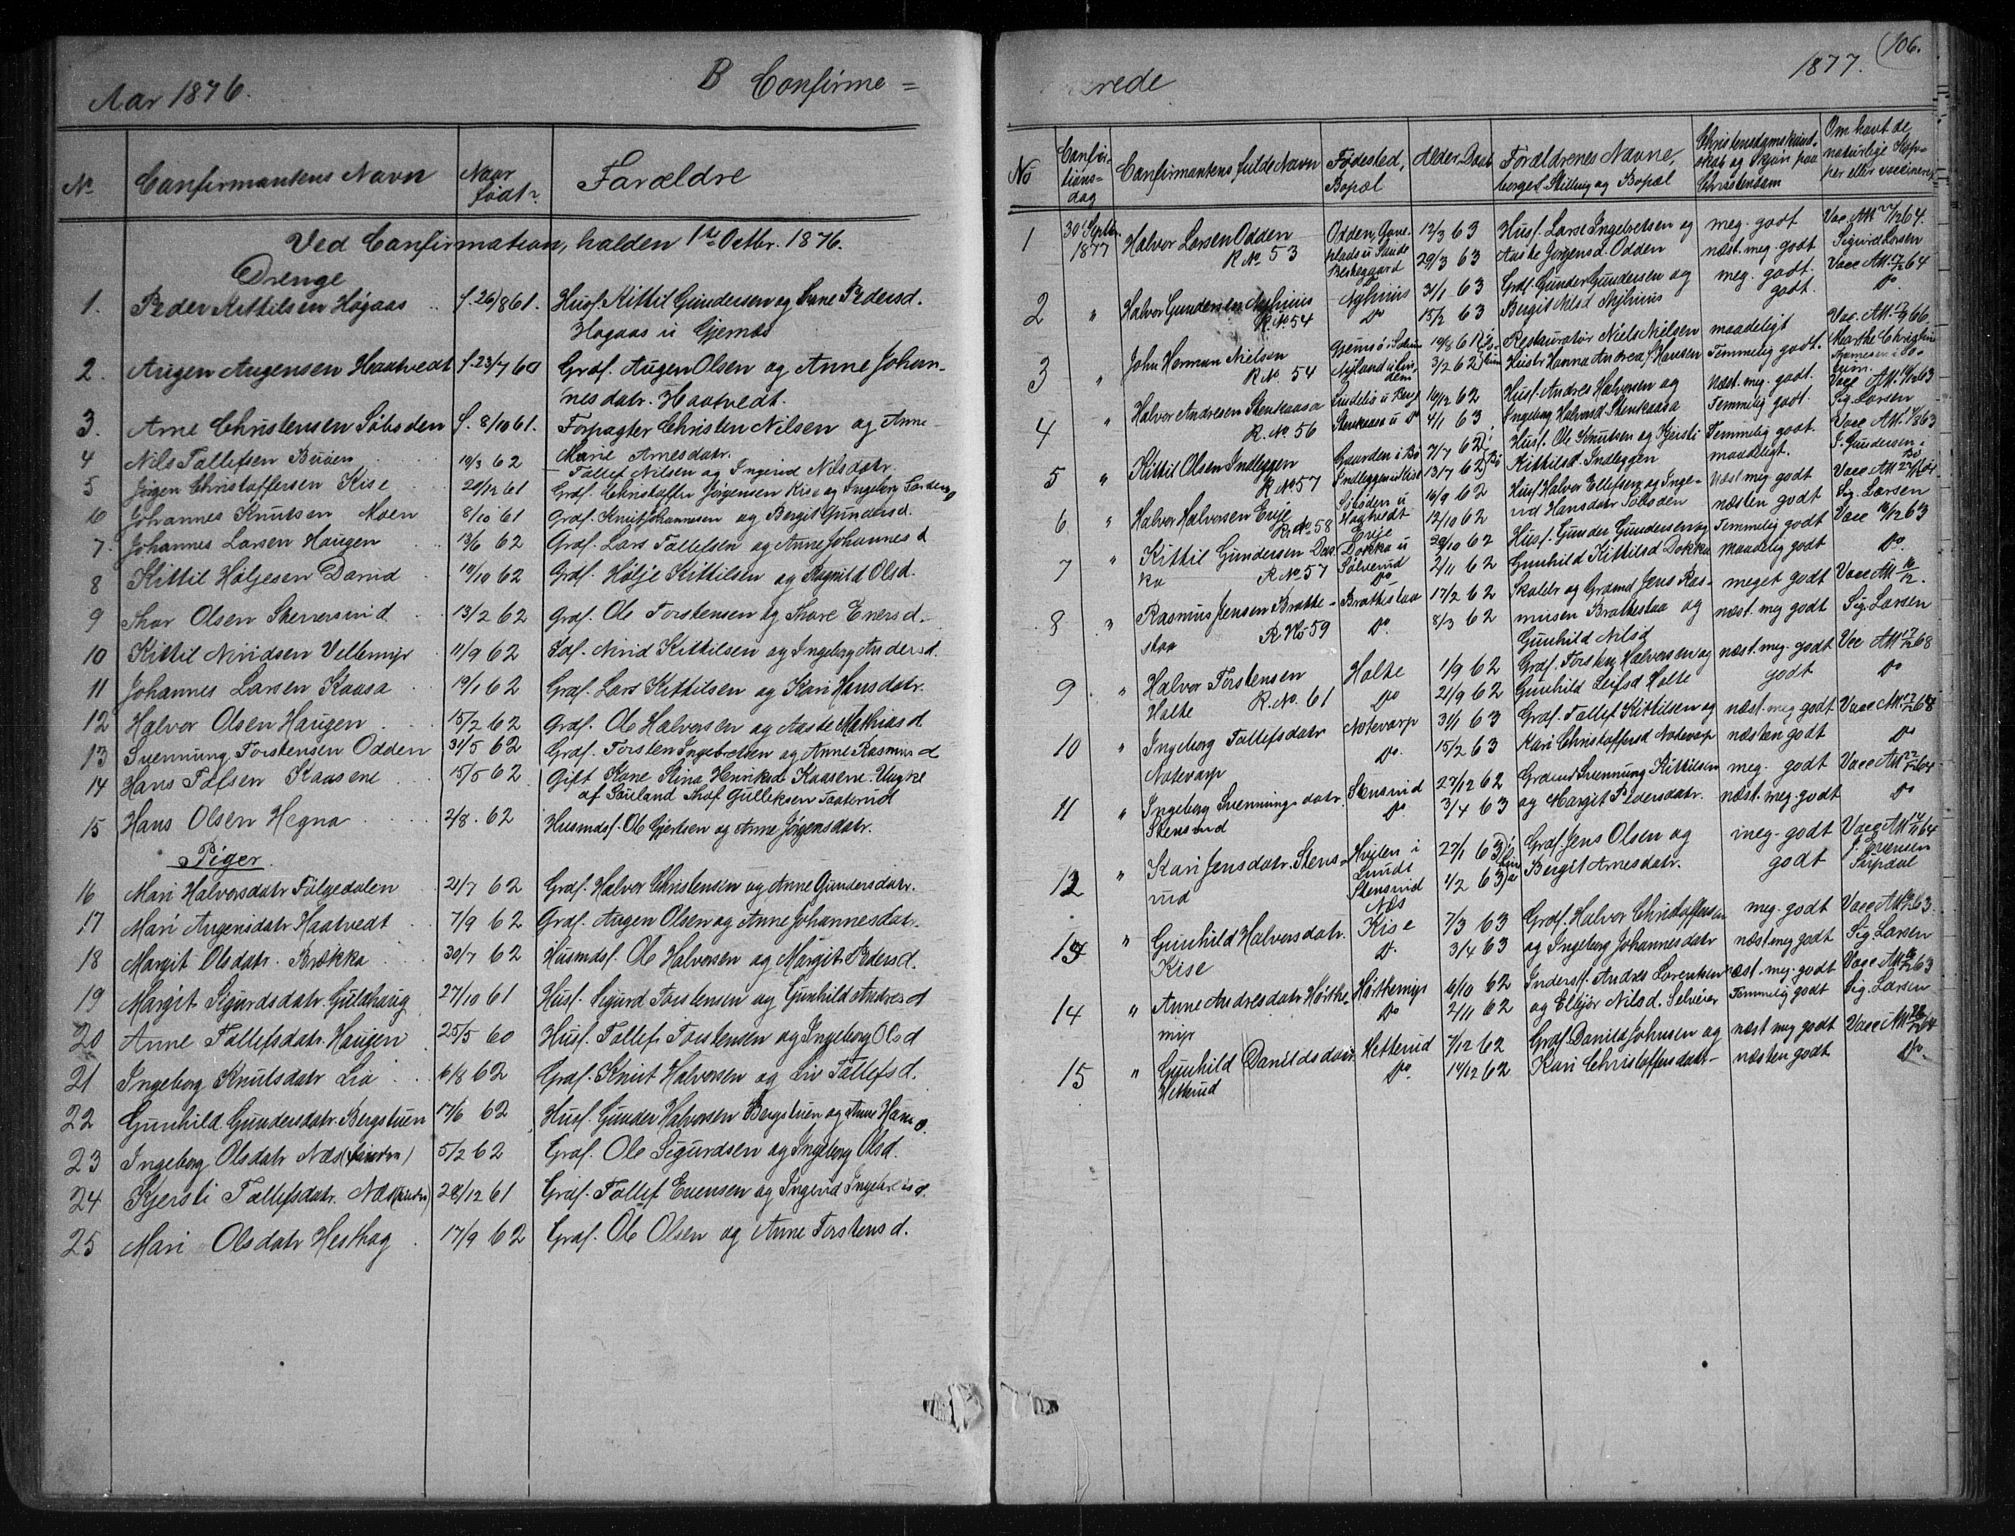 Aar 1876. B Confirme=
No Confirmantens Navn Naar født Forældre
Ved Confirmation, holden 1te Octbr. 1876.
Drenge
1. Peder Kittilsen Høgaas f. 26/8 61. Husf. Kittil Gundersen og Anne Pedersd.
Høgaas u Gjernæs
2. Augen Augensen Haatvedt f. 23/7 60 Grdf. Augen Olsen og Anne Johan-
nesdatr. Haatvedt.
3. Arne Christensen Søbøden f. 8/10 61. Forpagter Christen Nilsen og Anne
Marie Arnesdatr.
4 Nils Tollefsen Buien 19/3 62 Tollef Nilsen og Ingerid Nilsdatr.
5 Jørgen Christoffersen Kise 20/12 61 Grdf. Christoffer Jørgensen Kise og Ingeborg
6 Johannes Knutsen Moen 8/10 61 Grdf. Knut Johannesen og Bergit Gundersd.
7. Johannes Larsen Haugen 13/6 62 Grdf. Lars Tollefsen og Anne Johannesd
8 Kittil Høljesen Darud 10/10 62 Grdf. Hølje Kittilsen og Ragnild Olsd.
9 Thor Olsen Skerversvid 13/2 62 Grdf. Ole Torstensen og Thore Enersd.
10 Kittil Niridsen Vellemyr 11/9 62 Sdf. Nirid Kittilsen og Ingeborg Andersd.
11 Johannes Larsen Kaasa 19/1 62 Grdf. Lars Kittilsen og Kari Hansdatr.
12 Halvor Olsen Haugen 15/2 62 Grdf. Ole Halvorsen og Aaste Mathiasd
13 Svennung Torstensen Odden 31/5 62 Grdf. Torsten Ingebretsen og Anne Rasmusd
14 Hans Tofsen Kaasene 15/5 62 Gift Kone Stina Henriksd Kaasene. Ungk.
af Sauland Thof Gulleksen Taaterud
15 Hans Olsen Hegna 2/8. 62 Husmdsf. Ole Gjertsen og Anne Jørgensdatr.
Piger
16 Mari Halvorsdatr Følgedalen 21/7 62 Grdf. Halvor Christensen og Anne Gundersdatr.
17 Mari Augensdatr Haatvedt 7/9 62 Grdf. Augen Olsen og Anne Johannesdatr.
18 Margit Olsdatr. Brekka 30/7 62 Husmdsf. Ole Halvorsen og Margit Pedersd.
19 Margit Sigurdsdatr. Guldhaug 27/10 61 Husf. Sigurd Torstensen og Gunhild Andresd
20 Anne Tollefsdatr. Haugen 25/5 60 Husf. Tollef Torstensen og Ingeborg Olsd
21 Ingeborg Knutsdatr Lia 6/8 62 Grdf. Knut Halvorsen og Liv Tollefsd.
22 Gunhild Gundersdatr. Bergstuen 17/6 62 Husf. Gunder Halvorsen Bergstuen og Anne Hansd.
23 Ingeborg Olsdatr Næs 5/2 62 Grdf. Ole Sigurdsen og Ingeborg Olsd.
24 Kjersti Tollefsdatr. Næs 28/12 61 Grdf. Tollef Evensen og Ingerid Ingebretsd.
25 Mari Olsdatr Hesthag 17/9 62 Grdf. Ole Olsen og Anne Torstensd.
rede 1877. 106.
No Confir-
tions-
dag Confirmantens fulde Navn Fødested,
Bopæl Alder Daab Forældrenes Navne,
borgerl. Stilling og Bopæl Christendomskund-
skab og Skjøn paa
Christendom Om havt de
naturlige Kop-
per eller vaccinere
1 30 Septbr
1877 Halvor Larsen Odden
R No 53 Odden, 12/3 63
29/3 63 Husf. Lars Ingebretsen og
Aaste Jørgensd. Odden meg. godt
næst. meg. godt Vac. Att 64.
Sigurd Larsen
2 " Halvor Gundersen
R. No. 54 31/1 63
15/2 63 Grdf. Gunder Gundersen og
Bergit Nilsd meg. godt.
godt. Vacc Att 64
Do
3 " John Herman Nielsen
R No. 54 19/8 61
3/2 62 Restauratør Niels Nielsen
Hustr Hanna Andrea Hansen maadeligt
Temmelig godt. Vac. Att. 66
Marthe Christine
4 " Halvor Andresen Stenkaasa
R. No. 56 Stenkaasa u Do 16/2 62
4/1 63 Husf. Andres Halvorsen og
Ingeborg Halvorsd. Stenkaasa Næst. meg. godt.
Temmelig godt. Vacc Att. 63
Sig. Larsen
5 " Kittil Olsen Indleggen
R No 57 Gaarden i Bø 7/7 62
13/7 62 i Bø Husf. Ole Knutsen og Kjersti
Kittilsd. Indleggen Temmelig godt
maadeligt. Vacc Att. 63
Gundersen
6 " Halvor Halvorsen Eveje
R. No. 58 Søbøden u
Haatvedt 16/9 62
12/10 62 Husf Halvor Ellefsen og Inge-
rid Hansdatr Søbøden Næst meg godt
næsten godt Vacc Att 64
Sig. Larsen
7 " Kittil Gundersen Dok-
ka R No 57 Dokka u
Sølverud
Do 20/10 62
2/11 62 Husf. Gunder Gundersen og
Gunhild Kittilsd Dokka Temmelig godt
maadelig godt Vacc 63
Do.
8 " Rasmus Jensen Bratte-
staa R. No 59 Brattestaa
Do. 17/2 62
8/3 62 Skolelr og Grdmd Jens Ras-
musen Brattestaa og
Gunhild Nilsd meget godt
næst. meg godt Vacc Att
Sig. Larsen
9 " Halvor Torstensen
Holte R. No. 61 Holte
Do 1/9 62
21/9 62 Grdf. Torsten Halvorsen og
Gunhild Leifsd Holte næst. meg. godt
godt Vcc Att 68
Do
10 " Ingeborg Tollefsdatr
Notevarp Notevarp
Do. 31/1 63
15/2 63 Grdf. Tollef Kittilsen og
Kari Christoffersd Notevarp næst. meg godt
næsten godt Vacc Att 68
Do
11 " Ingeborg Svennungsdatr.
Stensrud Stensrud
Do. 27/12 62
3/4 63 Grdmd Svennung Kittilsen
og Margit Pedersdatr. meg. godt
næst. meg. godt Vacc Att 64
Do
12 " Kari Jensdatr. Stens-
rud Heglen i
Lunde
Stensrud 27/1 63
1/2 63 Grdf. Jens Olsen og
Bergit Arnesdatr. meg. godt
godt Vacc Att 64
Evensen
13 " Gunhild Halvorsdatr.
Kise Næs
Kise
Do 7/3 63
3/4 63 Grdf. Halvor Christoffersen
og Ingeborg Johannesdatr meg. godt
næst meg godt Vacc Att 63.
Sig. Larsen
14 " Anne Andresdatr Hørte-
myr Hørtemyr
Do 6/10 62
2/11 62 Inderst. Andres Lorentsen
og Elbjør Nilsd. næst. meg. godt
Temmelig godt Vacc Att 63
Sig. Larsen
15 " Gunhild Danildsdatr
Hetterud Hetterud
Do. 7/12 62
14/12 62 Grdf. Danild Johnsen og
Kari Christoffersdatr. næst meg godt
næsten godt Vacc Att 64
Do.